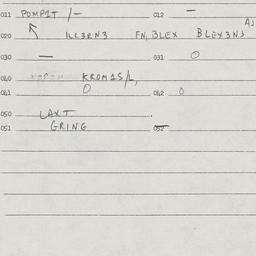 011 POMP1T /- 012 -
AJ
020 ILE3RN3 FN, BLEX BLEX3NJ
030 - 031 O
060 KROM1S/L,
061 O 062 O
050 LAXT
051 GRING 052